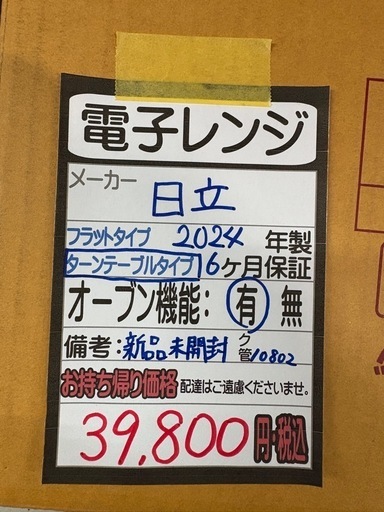 電子レンジ
メーカー
日立
フラットタイプ 2024 年製
ターンテーブルタイプ 6ヶ月保証
オーブン機能：有 無
備考：新品未開封 ク管10802
お持ち帰り価格 配達はご遠慮くださいませ。
39,800 円・税込